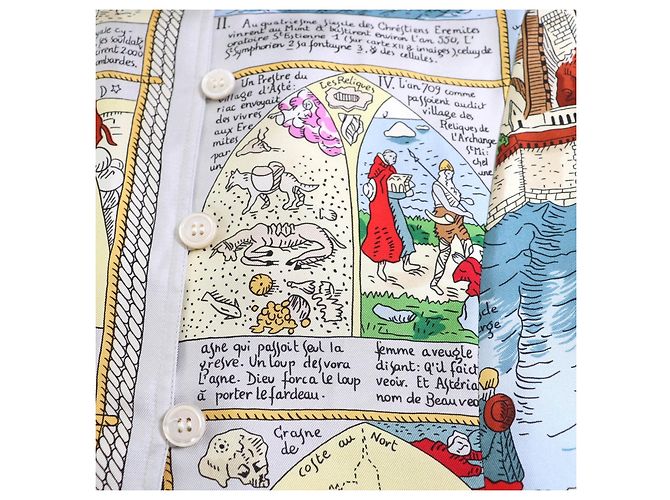 ale cy-
es souldats
urirent 2000
ombardes.
D
II. Au quatriesme Siescle des Chrestiens Eremites
vinrent au Munt & bastirent environ l'an 550, L'
oratoire St Estienne 1 (sur carte XII & imaiges), celuy de
St Symphorien 2 sa fontayne 3. & des cellules.
Un Prestre du
village d'Asté-
riac envoyait
des vivres
aux Ere
mites
par
un
Les Reliques
IV. L'an 709 comme
passoient audit
village des
Reliques de
l'Archange
St Mi
chel
une
asne qui passoit seul la
gresve. Un loup desvora
l'asne. Dieu força le loup
à porter le fardeau.
femme aveugle
disant: q'il faict
veoir. Et Astéria
nom de Beauveo
de
rge
Grasne
de
coste au Nort